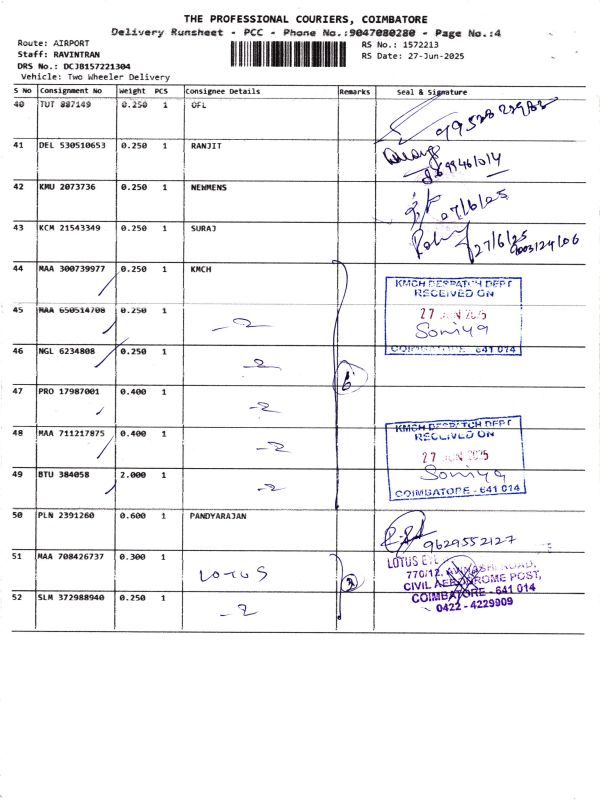 THE PROFESSIONAL COURIERS, COIMBATORE
Delivery Runsheet - PCC - Phone No.:9047080280 - Page No.:4
Route: AIRPORT
Staff: RAVINTRAN
DRS No.: DCJB157221304
Vehicle: Two Wheeler Delivery
RS No.: 1572213
RS Date: 27-Jun-2025
S No Consignment No Weight PCS Consignee Details Remarks Seal & Signature
40 TUT 887149 0.250 1 OFL
41 DEL 530510653 0.250 1 RANJIT
42 KMU 2073736 0.250 1 NEWMENS
43 KCM 21543349 0.250 1 SURAJ 27/6/25
44 MAA 300739977 0.250 1 KMCH
KMCH DESPATCH DEPT
RECEIVED ON
27 JUN 2025
Soniya
COIMBATORE - 641 014
45 MAA 650514708 0.250 1
46 NGL 6234808 0.250 1
6
47 PRO 17987001 0.400 1
48 MAA 711217875 0.400 1
KMCH DESPATCH DEPT
RECEIVED ON
27 JUN 2025
Soniya
COIMBATORE - 641 014
49 BTU 384058 2.000 1
50 PLN 2391260 0.600 1 PANDYARAJAN 9629552127
51 MAA 708426737 0.300 1 LOTUS
LOTUS EYE
770/12, AVINASHI ROAD,
CIVIL AERODROME POST,
COIMBATORE - 641 014
0422 - 4229909
52 SLM 372988940 0.250 1